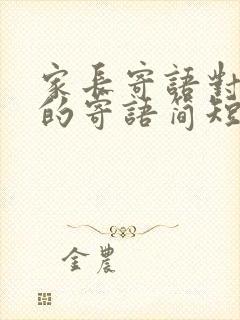 家长寄語對
的寄語简短
金農